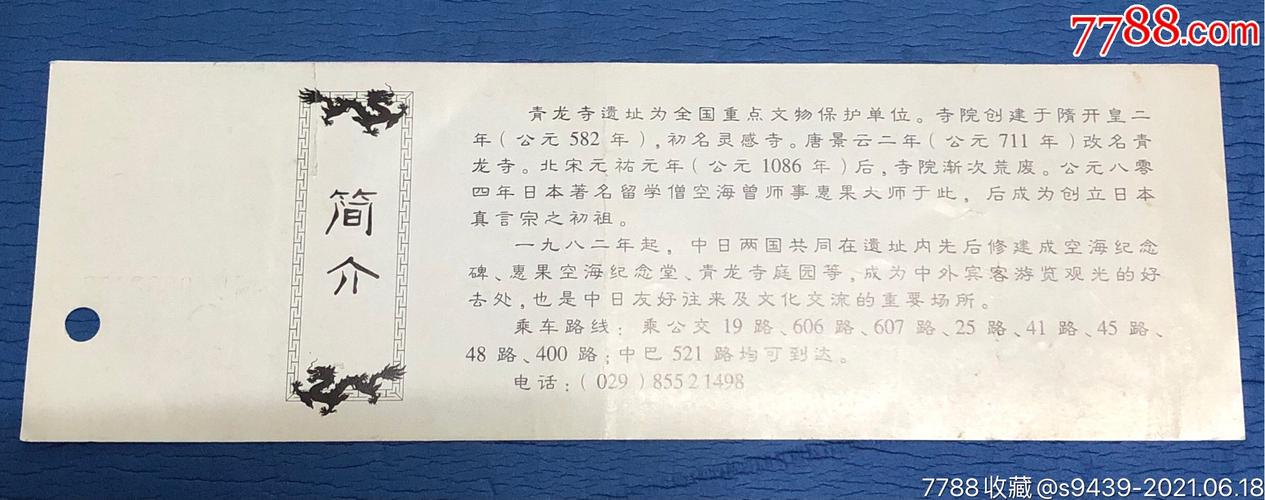 7788.com
简介
青龙寺遗址为全国重点文物保护单位。寺院创建于隋开皇二
年(公元 582 年),初名灵感寺。唐景云二年(公元 711 年)改名青
龙寺。北宋元祐元年(公元 1086 年)后,寺院渐次荒废。公元八零
四年日本著名留学僧空海曾师事惠果大师于此,后成为创立日本
真言宗之初祖。
一九八二年起,中日两国共同在遗址内先后修建成空海纪念
碑、惠果空海纪念堂、青龙寺庭园等,成为中外宾客游览观光的好
去处,也是中日友好往来及文化交流的重要场所。
乘车路线:乘公交 19 路、606 路、607 路、25 路、41 路、45 路、
48 路、400 路;中巴 521 路均可到达。
电话:(029)85521498
7788收藏@s9439-2021.06.18